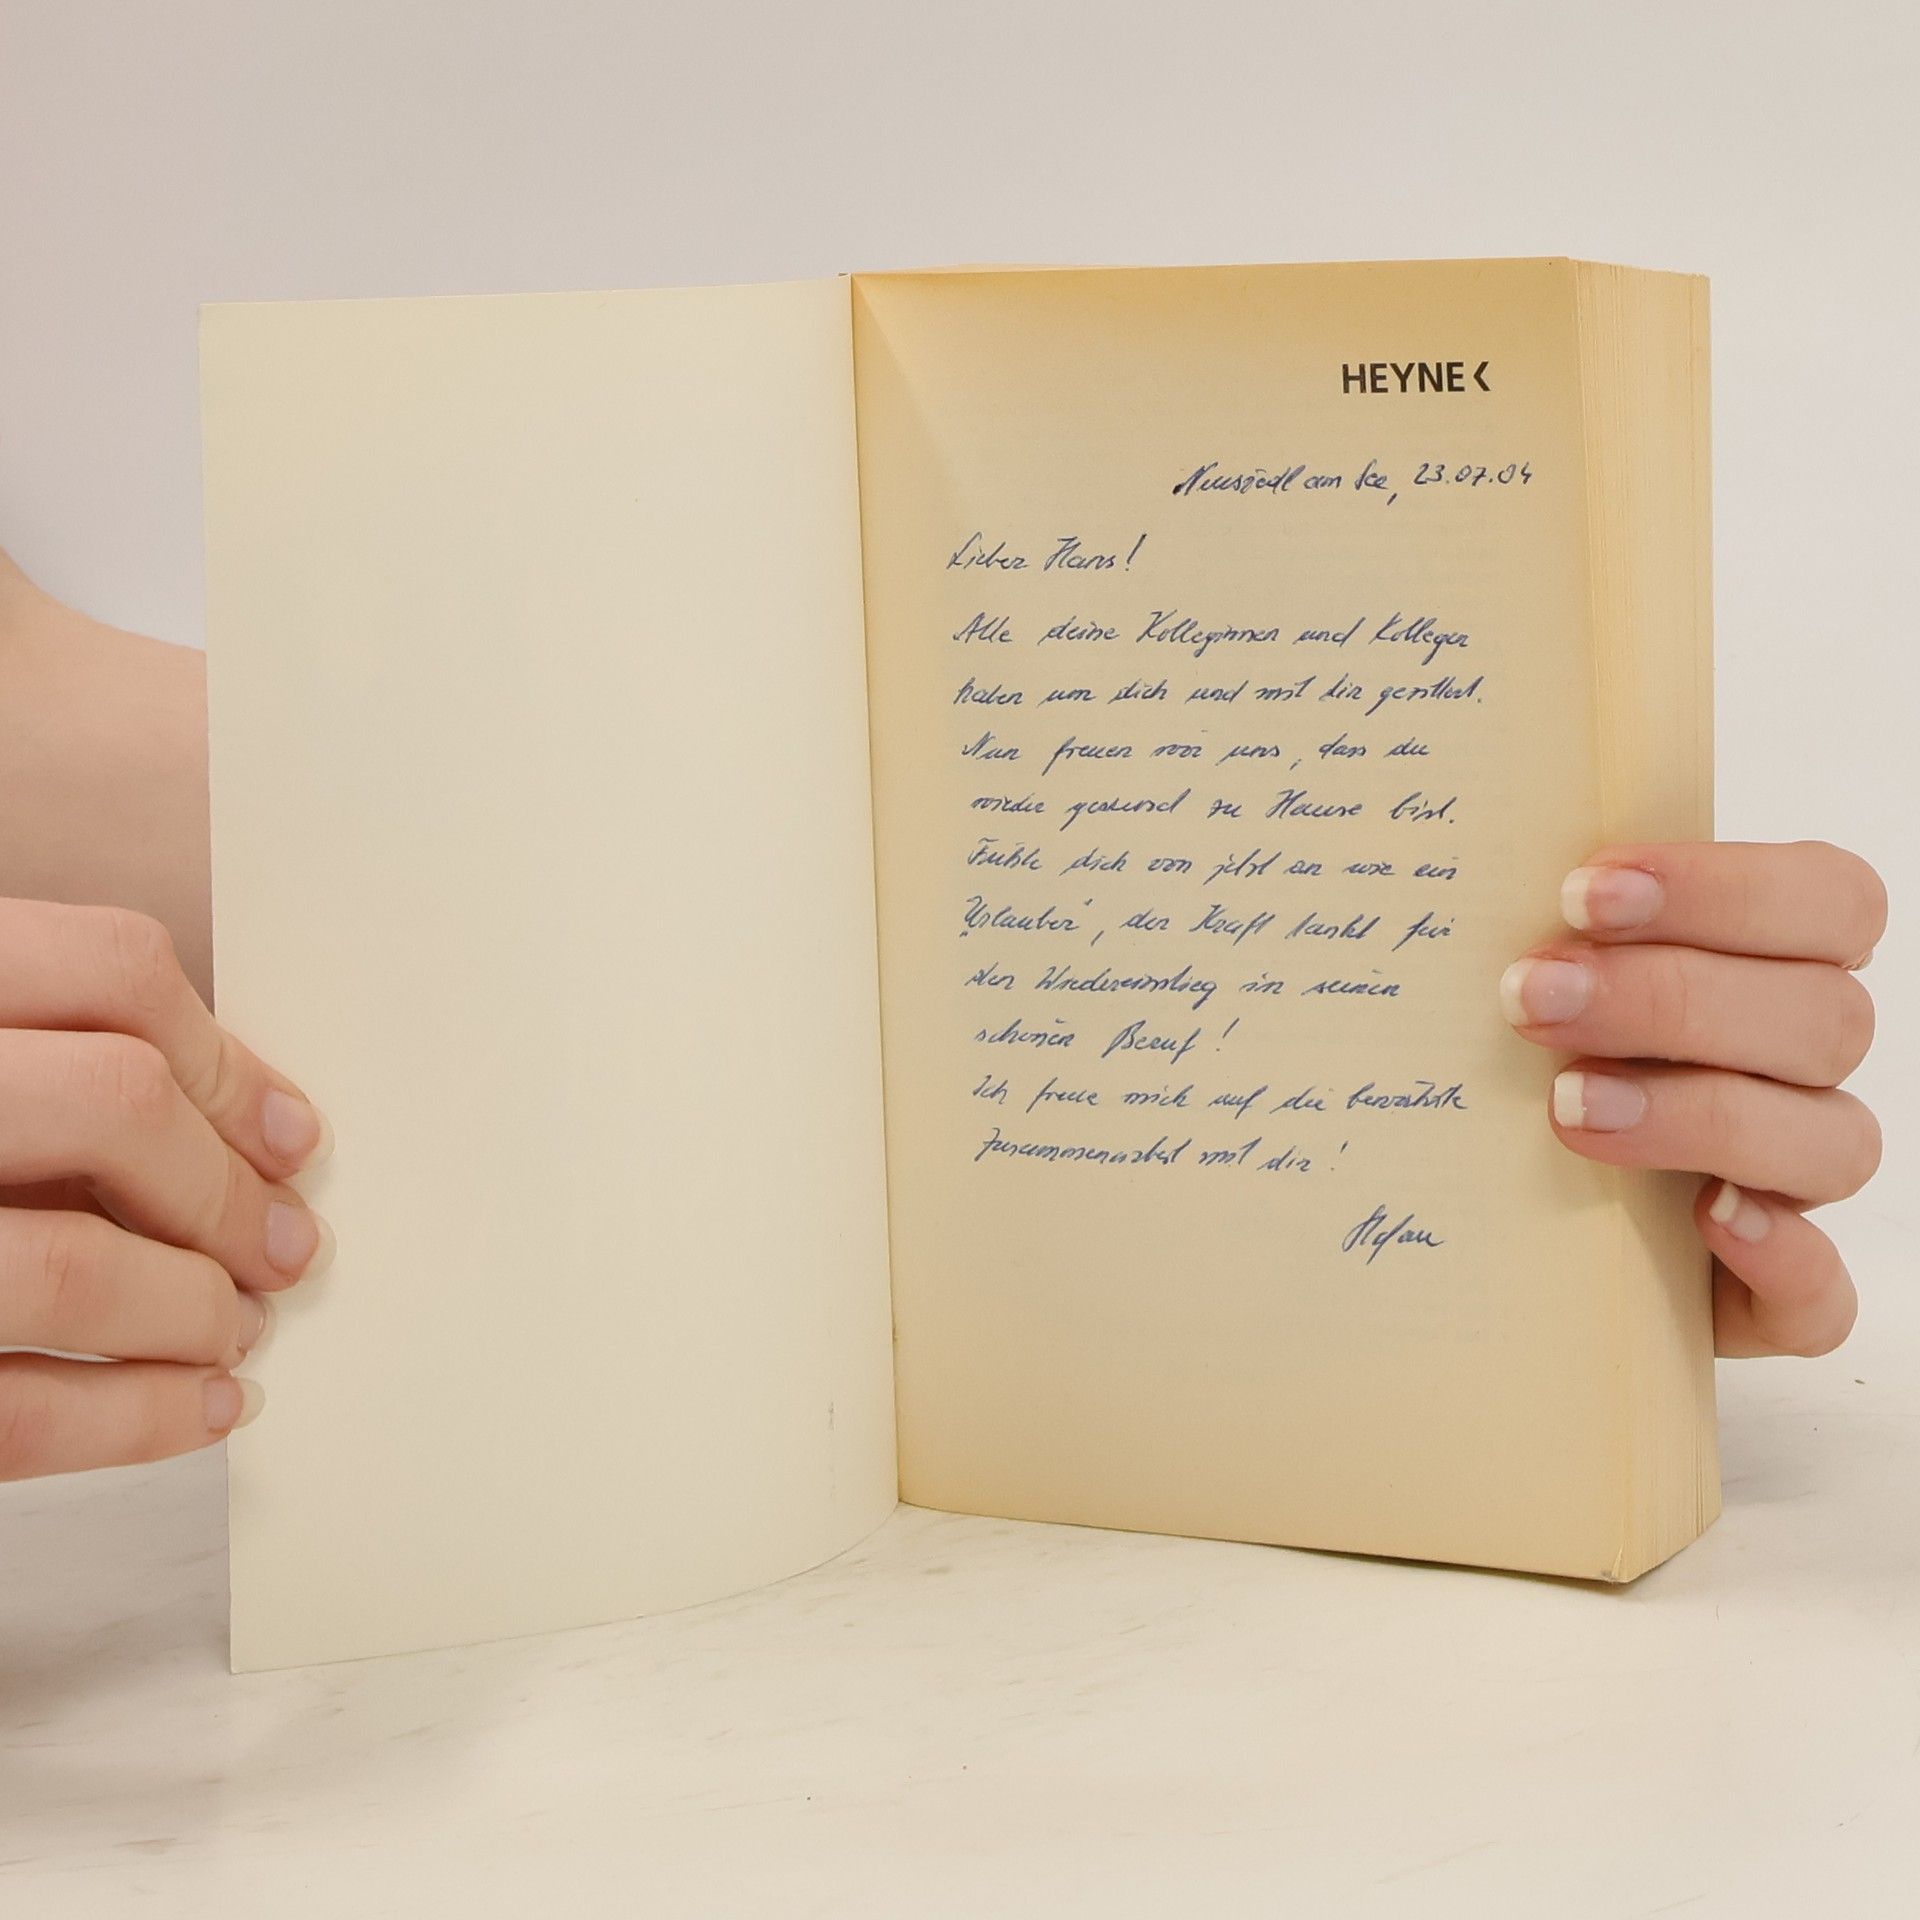 HEYNE<
Neusiedl am See, 23.07.04
Lieber Hans!
Alle deine Kolleginnen und Kollegen
haben um dich und mit dir gezittert.
Nun freuen wir uns, dass du
wieder gesund zu Hause bist.
Fühle dich von jetzt an wie ein
„Urlauber“, der Kraft tankt für
den Wiedereinstieg in seinen
schönen Beruf!
Ich freue mich auf die bewährte
Zusammenarbeit mit dir!
Stefan